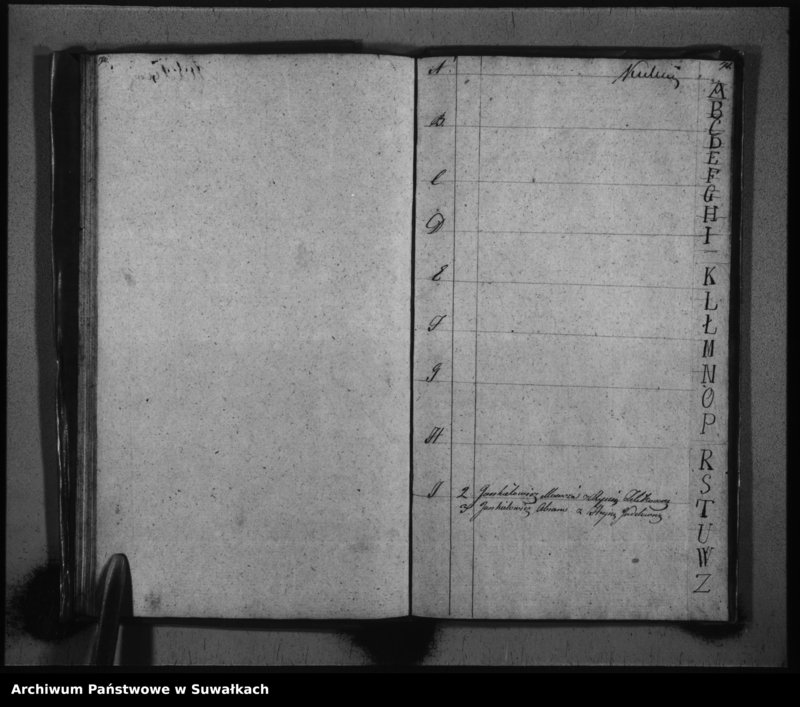 A
B
C
D
E
F
G
H
I 2 Jankielowicz z
3 Jankielowicz Abram z
A
B
C
D
E
F
G
H
I
K
L
Ł
M
N
O
P
R
S
T
U
W
Z
Archiwum Państwowe w Suwałkach